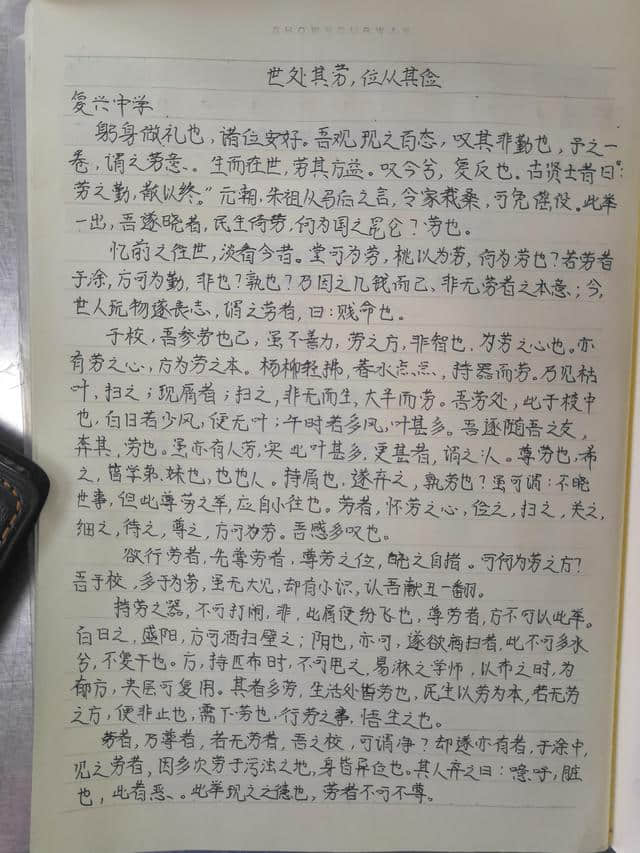 世处其劳,位从其俭
复兴中学
躬身做礼也,诸位安好。吾观,现之百态,叹其非勤也,予之一
卷,谓之劳意、。生而在世,劳其方益。叹今兮,复反也。古贤士昔曰“:
劳之勤,散以终。”元朝,朱祖从马后之言,令家栽桑,可免徭役。此举
一出,吾遂晓者,民生待劳,何为国之昆仑?劳也。
忆前之往世,淡看今昔。堂可为劳,桃以为劳,何为劳也?若劳者
于涂,方可为勤,非也?孰也?乃因之几钱而己、非无劳者之本意;今,
世人玩物遂丧志,谓之劳者,曰:贱命也。
于校,吾参劳也己,虽不善力,劳之方,非智也,为劳之心也。亦
有劳之心,方为劳之本。杨柳轻拂,春水点点,持器而劳。乃见枯
叶,扫之;现屑者;扫之,非无而生,大半而劳。吾劳处,此于校中
也,白日若少风,便无叶;午时若多风,叶甚多。吾遂随吾之友,
奔其,劳也。虽亦有人劳,实此叶甚多,更甚者,谓之:人。尊劳也,希
之,皆学弟、妹也,也也人。持屑也,遂弃之,孰劳也?虽可谓:不晓
世事,但此尊劳之举,应自小往也。劳者,怀劳之心,俭之,扫之,关之,
细之,待之,尊之,方可为劳。吾感多叹也。
欲行劳者,先尊劳者,尊劳之位,之自措。可何为劳之方?
吾于校,多于为劳,虽无大见,却有小识,认吾献丑一翻。
持劳之器,不可打闹,非,此屑便纷飞也,尊劳者,方不可以此举。
白日之,盛阳,方可洒扫壁之;阴也,亦可,遂欲病扫者,此不可多水
兮,不宴干也。方,持匹布时,不可甩之,易淋之学师,以布之时,为
郁方,夹层可复用。其者多劳,生活处皆劳也,民生以劳为本,若无劳
之方,便非止也,需下劳也,行劳之事,悟生之也。
劳者,万尊者,若无劳者,吾之校,可谓净?却遂亦有者,于涂中,
见之劳者,因多次劳于污浊之地,身皆异位也。其人弃之曰:噫吁,脏
也,此者恶、。此举现之之德也,劳者不可不尊。